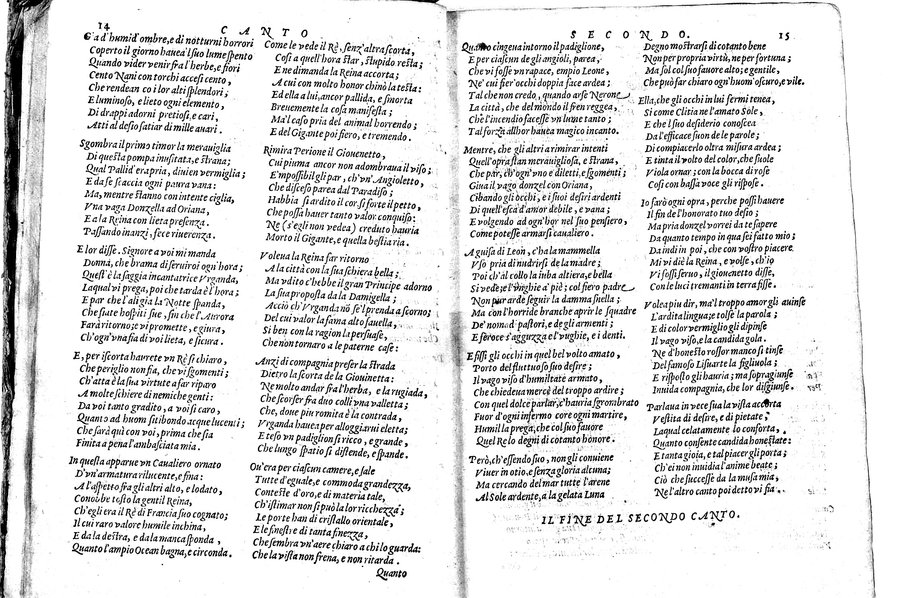 14
CANTO
Già d'humid'ombre, e di notturni horrori
Coperto il giorno hauea'l suo lume spento
Quando vider venir fra l'herbe, e fiori
Cento Nani con torchi accesi cento,
Che rendean co i lor alti splendori;
E luminoso, e lieto ogni elemento,
Di drappi adorni pretiosi, e cari,
Atti al desio satiar di mille auari.
Sgombra il primo timor la merauiglia
Di questa pompa inusitata, e strana;
Qual Pallid'era pria, diuien vermiglia;
E da se scaccia ogni paura vana:
Ma, mentre stanno con intente ciglia,
Vna vaga Donzella ad Oriana,
E a la Reina con lieta presenza,
Passando inanzi, fece riuerenza.
E lor disse. Signore a voi mi manda
Donna, che brama di seruirui ogn'hora;
Quest'è la saggia incantatrice Vrganda,
Laqual vi prega, poi che tarda è l'hora;
E par che l'aligia la Notte spanda,
Che siate hospiti sue, fin che l'Aurora
Farà ritorno; e vi promette, e giura,
Ch'ogn'vna fia di voi lieta, e sicura.
E, per iscorta haurete vn Rè sì chiaro,
Che periglio non fia, che vi sgomenti;
Ch'atta è la sua virtute a far riparo
A molte schiere di nemiche genti:
Da voi tanto gradito, a voi sì caro,
Quanto ad huom sitibondo acque lucenti;
Che sarà quì con voi, prima che sia
Finita a pena l'ambasciata mia.
In questa apparue vn Caualiero ornato
D'vn'armatura rilucente, e fina:
A l'aspetto fra gli altri alto, e lodato,
Conobbe tosto la gentil Reina,
Ch'egli era il Rè di Francia suo cognato;
Il cui raro valore humile inchina,
E da la destra, e da la manca sponda,
Quanto l'ampio Ocean bagna, e circonda.
Come le vede il Rè, senz'altra scorta,
Così a quell'hora star, stupido resta;
E ne dimanda la Reina accorta;
A cui con molto honor chinò la testa:
Ed ella a lui, ancor pallida, e smorta
Breuemente la cosa manifesta;
Ma'l caso pria del animal horrendo;
E del Gigante poi fiero, e tremendo.
Rimira Perione il Giouenetto,
Cui piuma ancor non adombraua il viso;
E'mpossibil gli par, ch'vn'Angioletto,
Che disceso parea dal Paradiso;
Habbia sì ardito il cor, sì forte il petto,
Che possa hauer tanto valor conquiso:
Ne (s'egli non vedea) creduto hauria
Morto il Gigante, e quella bestia ria.
Voleua la Reina far ritorno
A la città con la sua schiera bella;
Ma vdito c'hebbe il gran Principe adorno
La sua proposta da la Damigella;
Acciò ch'Vrganda nō se'l prenda a scorno;
Del cui valor la fama alto fauella,
Sì ben con la ragion la persuase,
Che non tornaro a le paterne case:
Anzi di compagnia preser la strada
Dietro la scorta de la Giouinetta:
Ne molto andar fra l'herba, e la rugiada,
Che scorser fra duo colli vna valletta;
Che, doue piu romita è la contrada,
Vrganda hauea per alloggiarui eletta;
E teso vn padiglion sì ricco, e grande,
Che lungo spatio si distende, e spande.
Ou'era per ciascun camere, e sale
Tutte d'eguale, e commoda grandezza,
Conteste d'oro, e di materia tale,
Ch'istimar non si può la lor ricchezza;
Le porte han di cristallo orientale,
E le finestre di tanta finezza,
Che sembra vn'aere chiaro a chi lo guarda:
Che la vista non frena, e non ritarda.
Quanto
SECONDO.
15
Quanto cingeua intorno il padiglione,
E per ciascun de gli angioli, parea,
Che vi fosse vn rapace, empio Leone,
Ne' cui fier'occhi doppia face ardea;
Tal che non credo, quando arse Nerone
La città, che del mondo il fren reggea,
Ch'è l'incendio facesse vn lume tanto;
Tal forza allhor hauea magico incanto.
Mentre, che gli altri a rimirar intenti
Quell'opra stan merauigliosa, e strana,
Che par, ch'ogn'vno e diletti, e sgomenti;
Giua il vago donzel con Oriana,
Cibando gli occhi, e i suoi desiri ardenti
Di quell'esca d'amor debile, e vana;
E volgendo ad ogn'hor nel suo pensiero,
Come potesse armarsi caualiero.
A guisa di Leon, c'ha la mammella
Vso pria di nudrirsi de la madre;
Poi ch'al collo la iuba altiera, e bella
Si vede, e l'vnghie a' piè; col fiero padre
Non pur arde seguir la damma suella;
Ma con l'horride branche aprir le squadre
De' nomadi pastori, e de gli armenti;
E feroce s'aguzza e l'vnghie, e i denti.
E fissi gli occhi in quel bel volto amato,
Porto del fluttuoso suo desire;
Il vago viso d'humiltate armato,
Che chiedeua mercè del troppo ardire;
Con quel dolce parlar, c'hauria sgombrato
Fuor d'ogni infermo core ogni martire,
Humil la prega; che col suo fauore
Quel Re lo degni di cotanto honore.
Però, ch'essendo suo, non gli conuiene
Viuer in otio, e senza gloria alcuna;
Ma cercando del mar tutte l'arene
Al Sole ardente, a la gelata Luna
Degno mostrarsi di cotanto bene
Non per propria virtù, ne per fortuna;
Ma sol col suo fauore alto; e gentile,
Che può far chiaro ogn'huom'oscuro, e vile.
Ella, che gli occhi in lui fermi tenea,
Si come Clitia ne l'amato Sole,
E che'l suo desiderio conoscea
Da l'efficace suon de le parole;
Di compiacerlo oltra misura ardea;
E tinta il volto del color, che suole
Viola ornar; con la bocca di rose
Così con bassa voce gli rispose.
Io farò ogni opra, perche possi hauere
Il fin de l'honorato tuo desio;
Ma pria donzel vorrei da te sapere
Da quanto tempo in qua sei fatto mio;
Da indi in poi, che con vostro piacere
Mi vi diè la Reina, e volse, ch'io
Vi fossi seruo, il giouenetto disse,
Con le luci tremanti in terra fisse.
Volea piu dir, ma'l troppo amor gli auinse
L'ardita lingua; e tolse la parola;
E di color vermiglio gli dipinse
Il vago viso, e la candida gola.
Ne d'honesto rossor manco si tinse
Del famoso Lisuarte la figliuola;
E risposto gli hauria; ma sopragiunse
Inuida compagnia, che lor disgiunse.
Parlaua in vece sua la vista accorta
Vestita di desire, e di pietate;
Laqual celatamente lo conforta,
Quanto consente candida honestate:
E tanta gioia, e tal piacer gli porta;
Ch'ei non inuidia l'anime beate;
Ciò che successe da la musa mia,
Ne l'altro canto poi detto vi fia.
IL FINE DEL SECONDO CANTO.